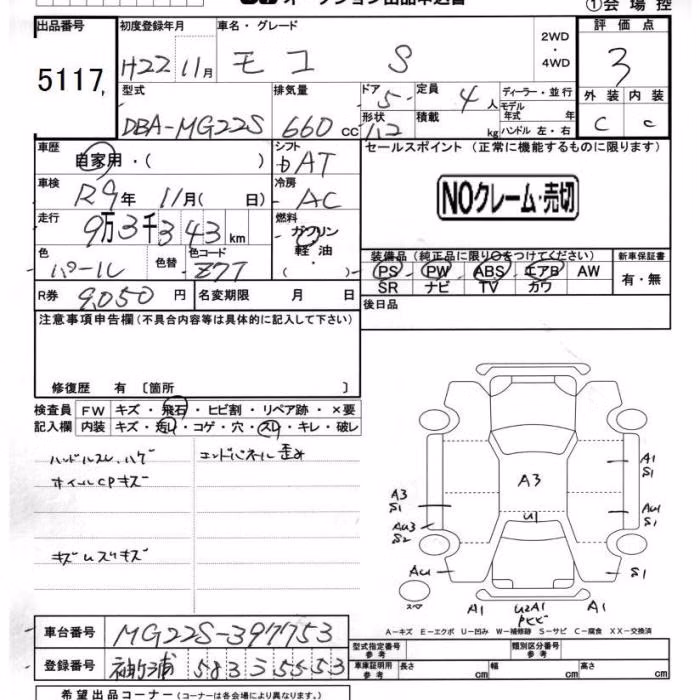 オークション出品申込書
①会場控
出品番号 初度登録年月 車名・グレード 評価点
5117 H22 11月 モコ S 2WD・4WD 3
型式 排気量 ドア 5 定員 4人 ディーラー・並行 外装 内装
DBA-MG22S 660cc 形状 積載 kg モデル年式 年 C c
ハンドル 左・右
車歴 シフト セールスポイント (正常に機能するものに限ります)
自家用・( ) AT
車検 冷房
R9年 11月( 日) AC NOクレーム・売切
走行 燃料
9万3千343km ガソリン
軽油
( )
装備品(純正品に限り○をつけてください) 新車保証書
色 色替 色コード PS PW ABS エアB AW 有・無
パール Z7T SR ナビ TV カワ
R券 9,050円 名変期限 月 日 後日品
注意事項申告欄(不具合内容等は具体的に記入して下さい)
修復歴 有〔箇所 〕
検査員 FW キズ・飛石・ヒビ割・リペア跡・×要
記入欄 内装 キズ・汚レ・コゲ・穴・スレ・キレ・破レ
ハンドルスレ、ハゲ エンドパネル歪み
ホイルCPキズ
キズ ムスリキズ
A3
A1
S1
A3
S1
U1
AU1
S1
AU3
S2
AU
S1
スペア
A1 U2A1 A1
A-キズ E-エクボ U-凹み W-補修跡 S-サビ C-腐食 XX-交換済
車台番号 MG22S-397753 型式指定番号 類別区分番号
参考 参考
登録番号 袖ヶ浦 583 車庫証明用 参考 長さ cm 幅 cm 高さ cm
希望出品コーナー(コーナーは各会場により異なります。)